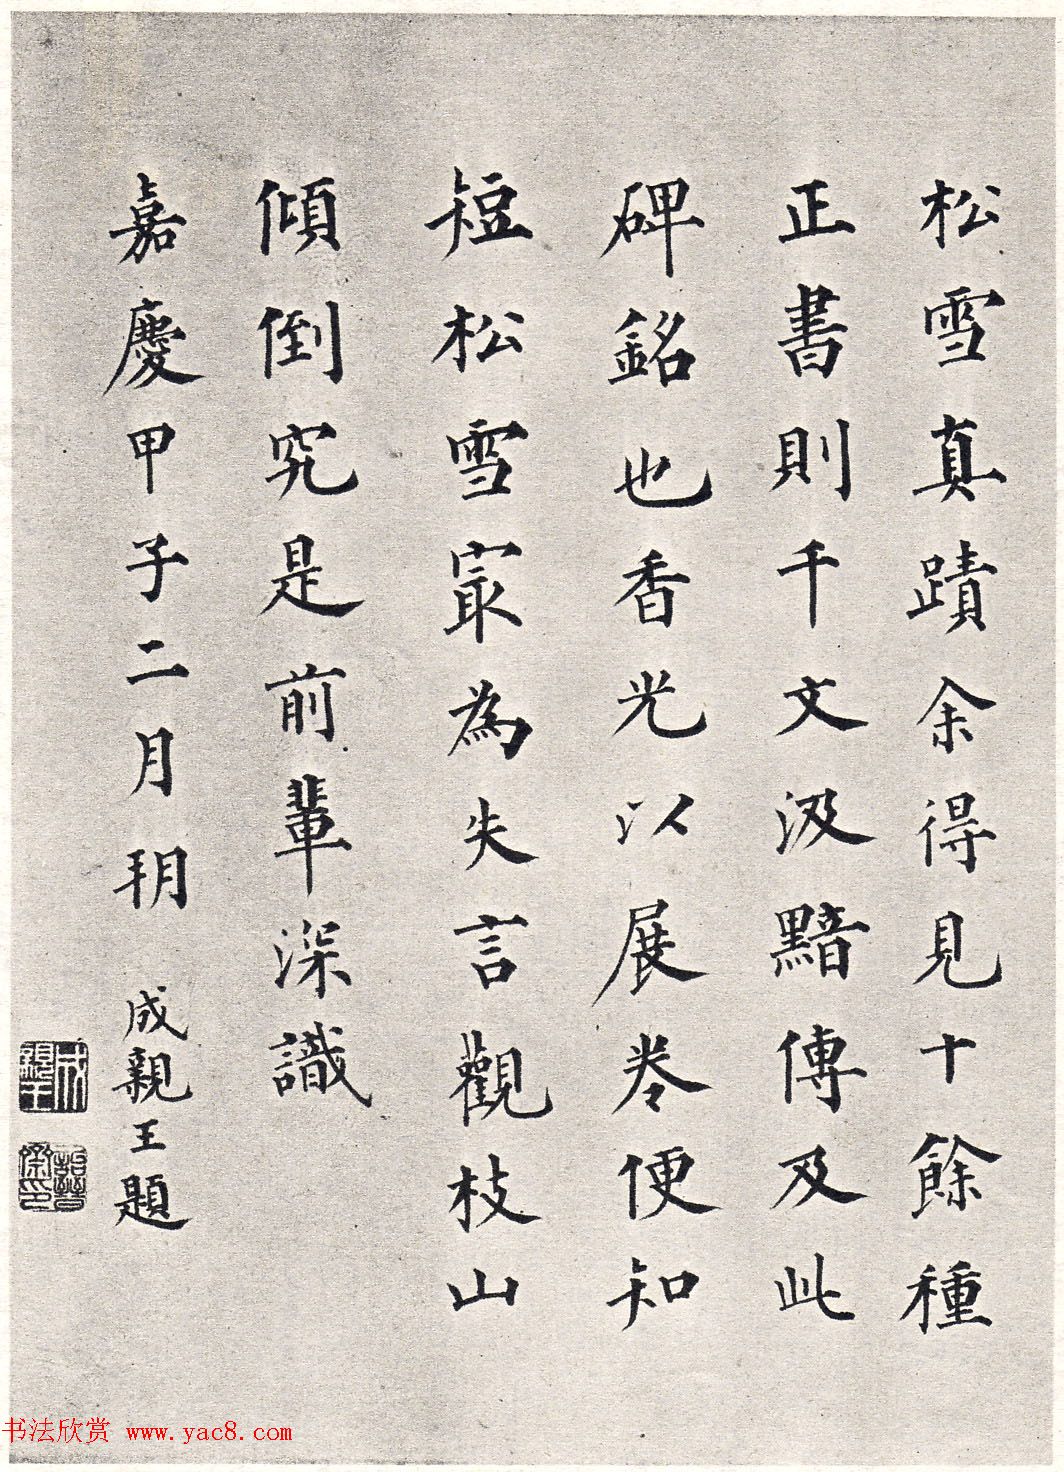 松雪真蹟余得見十餘種
正書則千文汲黯傳及此
碑銘也香光以展卷便知
短松雪冣為失言觀枝山
傾倒究是前輩深識
嘉慶甲子二月玥
成親王題
成親王
詒晉齋印
书法欣赏 www.yac8.com